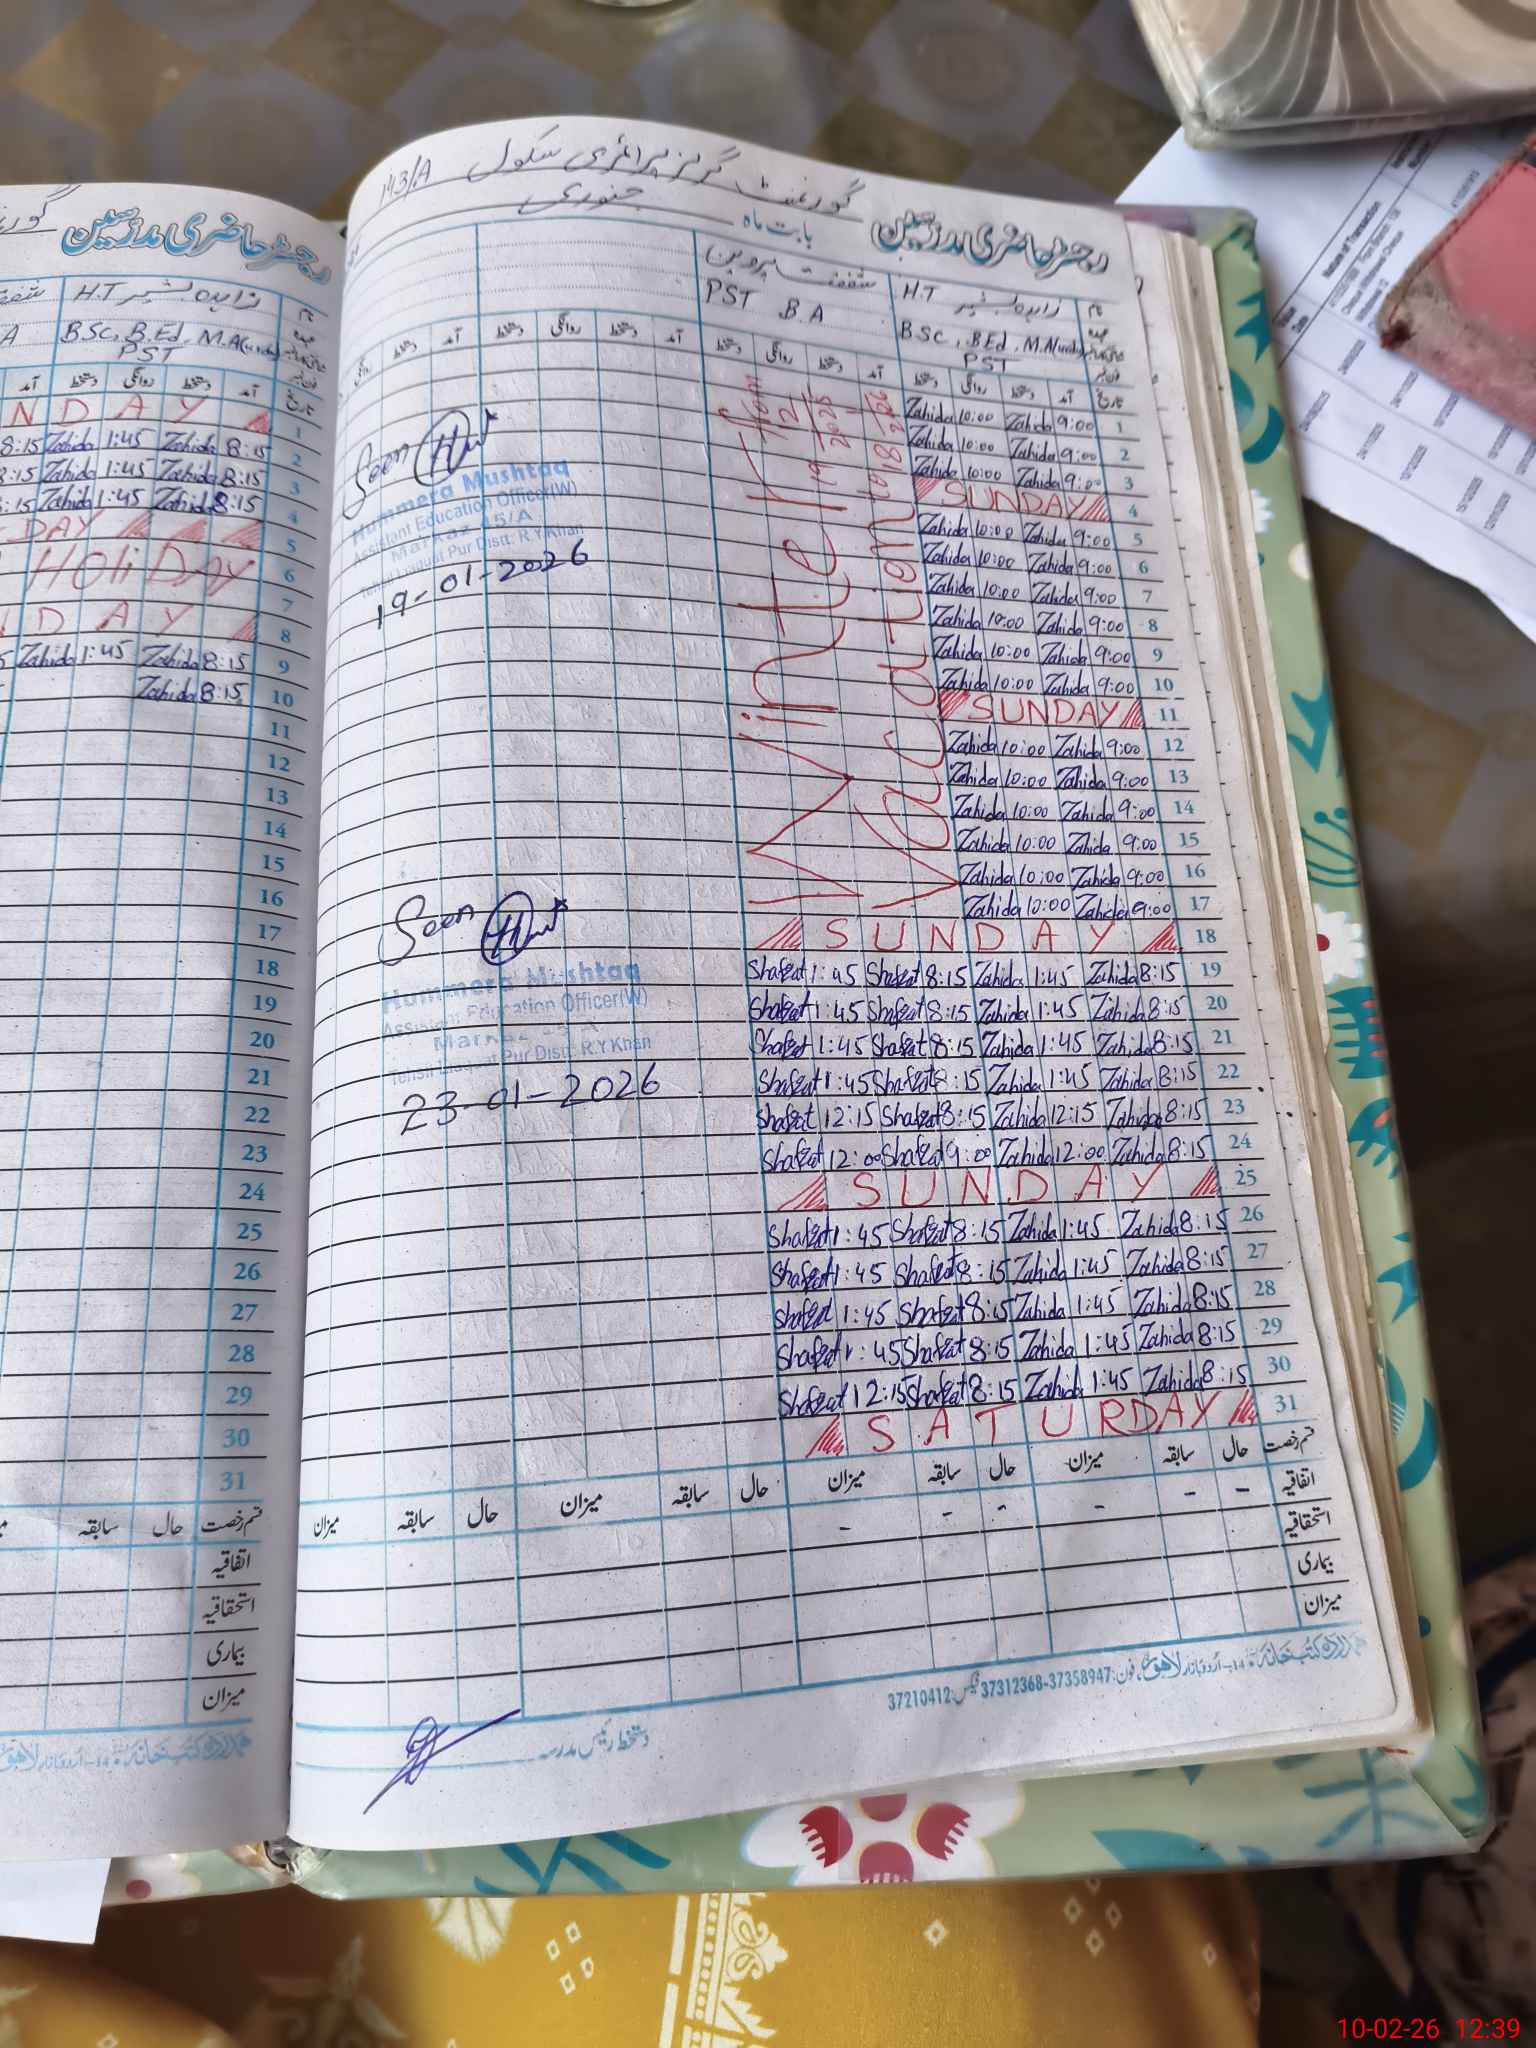 گورنمنٹ گرلز پرائمری سکول 143/A
رجسٹر حاضری مدرسین بابت ماہ جنوری
نام زاہدہ بشیر H.T شفقت پروین
عہدہ BSc, B.Ed, M.A(urdu) PST B.A
PST
تاریخ آمد دستخط روانگی دستخط آمد دستخط روانگی دستخط آمد دستخط روانگی دستخط آمد دستخط روانگی
Winter Vacation
From
19/12/2025
to 18
1 9:00 Zahida 10:00 Zahida
2 9:00 Zahida 10:00 Zahida
3 9:00 Zahida 10:00 Zahida
4 SUNDAY
5 9:00 Zahida 10:00 Zahida
6 9:00 Zahida 10:00 Zahida
7 9:00 Zahida 10:00 Zahida
8 9:00 Zahida 10:00 Zahida
9 9:00 Zahida 10:00 Zahida
10 9:00 Zahida 10:00 Zahida
11 SUNDAY
12 9:00 Zahida 10:00 Zahida
13 9:00 Zahida 10:00 Zahida
14 9:00 Zahida 10:00 Zahida
15 9:00 Zahida 10:00 Zahida
16 9:00 Zahida 10:00 Zahida
17 9:00 Zahida 10:00 Zahida
18 SUNDAY
19 8:15 Zahida 1:45 Zahida 8:15 Shafqat 1:45 Shafqat
20 8:15 Zahida 1:45 Zahida 8:15 Shafqat 1:45 Shafqat
21 8:15 Zahida 1:45 Zahida 8:15 Shafqat 1:45 Shafqat
22 8:15 Zahida 1:45 Zahida 8:15 Shafqat 1:45 Shafqat
23 8:15 Zahida 12:15 Zahida 8:15 Shafqat 12:15 Shafqat
24 8:15 Zahida 12:00 Zahida 9:00 Shafqat 12:00 Shafqat
25 SUNDAY
26 8:15 Zahida 1:45 Zahida 8:15 Shafqat 1:45 Shafqat
27 8:15 Zahida 1:45 Zahida 8:15 Shafqat 1:45 Shafqat
28 8:15 Zahida 1:45 Zahida 8:15 Shafqat 1:45 Shafqat
29 8:15 Zahida 1:45 Zahida 8:15 Shafqat 1:45 Shafqat
30 8:15 Zahida 1:45 Zahida 8:15 Shafqat 12:15 Shafqat
31 SATURDAY
قسم رخصت حال سابقہ میزان حال سابقہ میزان حال سابقہ میزان حال سابقہ میزان
اتفاقیہ - - - - - -
استحقاقیہ
بیماری
میزان
ہمدرد کتب خانہ اُردو بازار لاہور، فون: 37358947-37312368 فیکس: 37210412
دستخط رئیس مدرسہ
Seen
Hummera Mushtaq
Assistant Education Officer(W)
Markaz 15/A
Tehsil Liaquat Pur Distt: R.Y.Khan
19-01-2026
Seen
Hummera Mushtaq
Assistant Education Officer(W)
Markaz 15/A
Tehsil Liaquat Pur Distt: R.Y.Khan
23-01-2026
رجسٹر حاضری مدرسین
زاہدہ بشیر H.T
BSc, B.Ed, M.A(urdu)
PST
تاریخ آمد دستخط روانگی دستخط آمد
1 NDAY
2 8:15 Zahida 1:45 Zahida 8:15
3 8:15 Zahida 1:45 Zahida 8:15
4 8:15 Zahida 1:45 Zahida 8:15
5 DAY
6 Holi DAY
7
8 DAY
9 8:15 Zahida 1:45 Zahida
10 8:15 Zahida
11
12
13
14
15
16
17
18
19
20
21
22
23
24
25
26
27
28
29
30
31
قسم رخصت حال سابقہ
اتفاقیہ
استحقاقیہ
بیماری
میزان
ہمدرد کتب خانہ اُردو بازار لاہور
Nature of Transaction
10-02-26 12:39